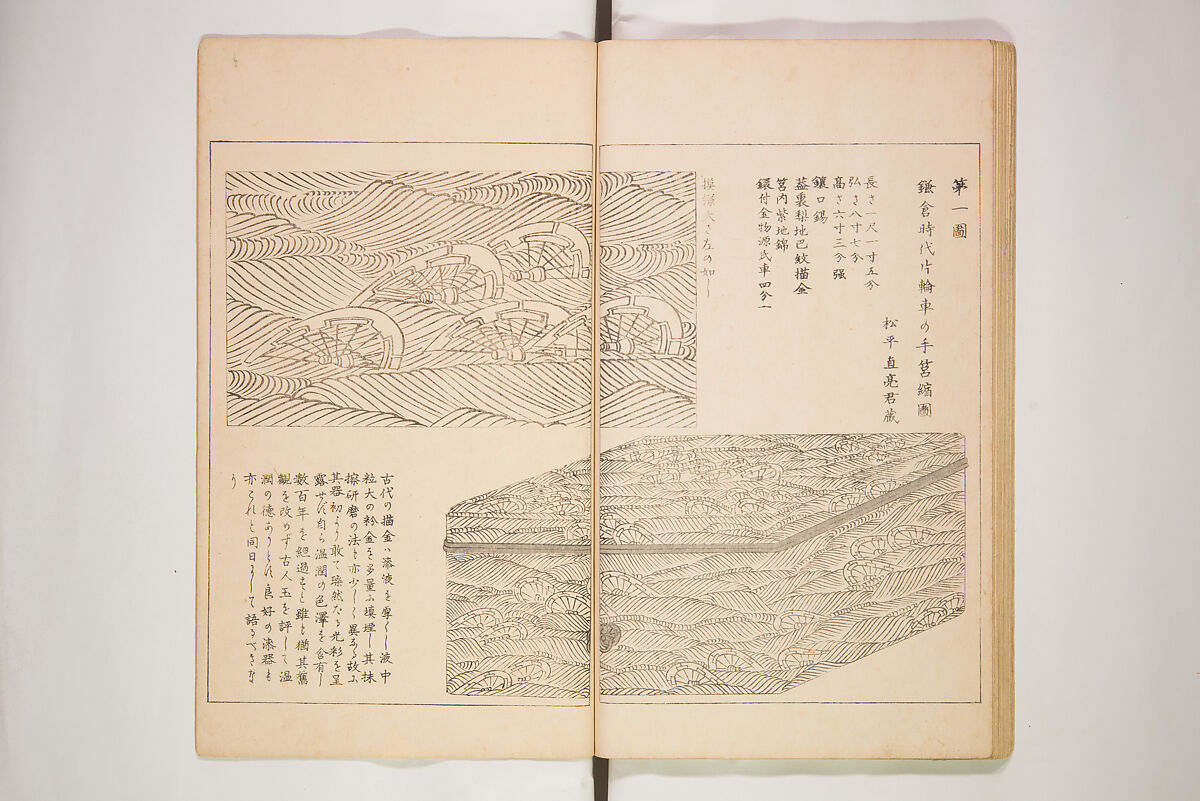 第一圖
鎌倉時代片輪車の手筥縮圖
松平直亮君藏
長さ一尺一寸五分
弘さ八寸七分
高さ六寸三分强
鑲口錫
蓋裏梨地巴紋描金
筥内紫地錦
鐶付金物源氏車四分一
模様大さ左の如し
古代の描金ハ漆液を厚くし液中
粒大の粉金を多量ニ填埋し其抹
擦研磨の法も亦少しく異なる故ニ
其器初より敢て璨然たる光彩を呈
露せず自ら温潤の色澤を含有し
數百年を經過すと雖も猶其舊
觀を改めず古人玉を評して温
潤の德ありとす良好の漆器も
亦これと同日にして語るべきな
り